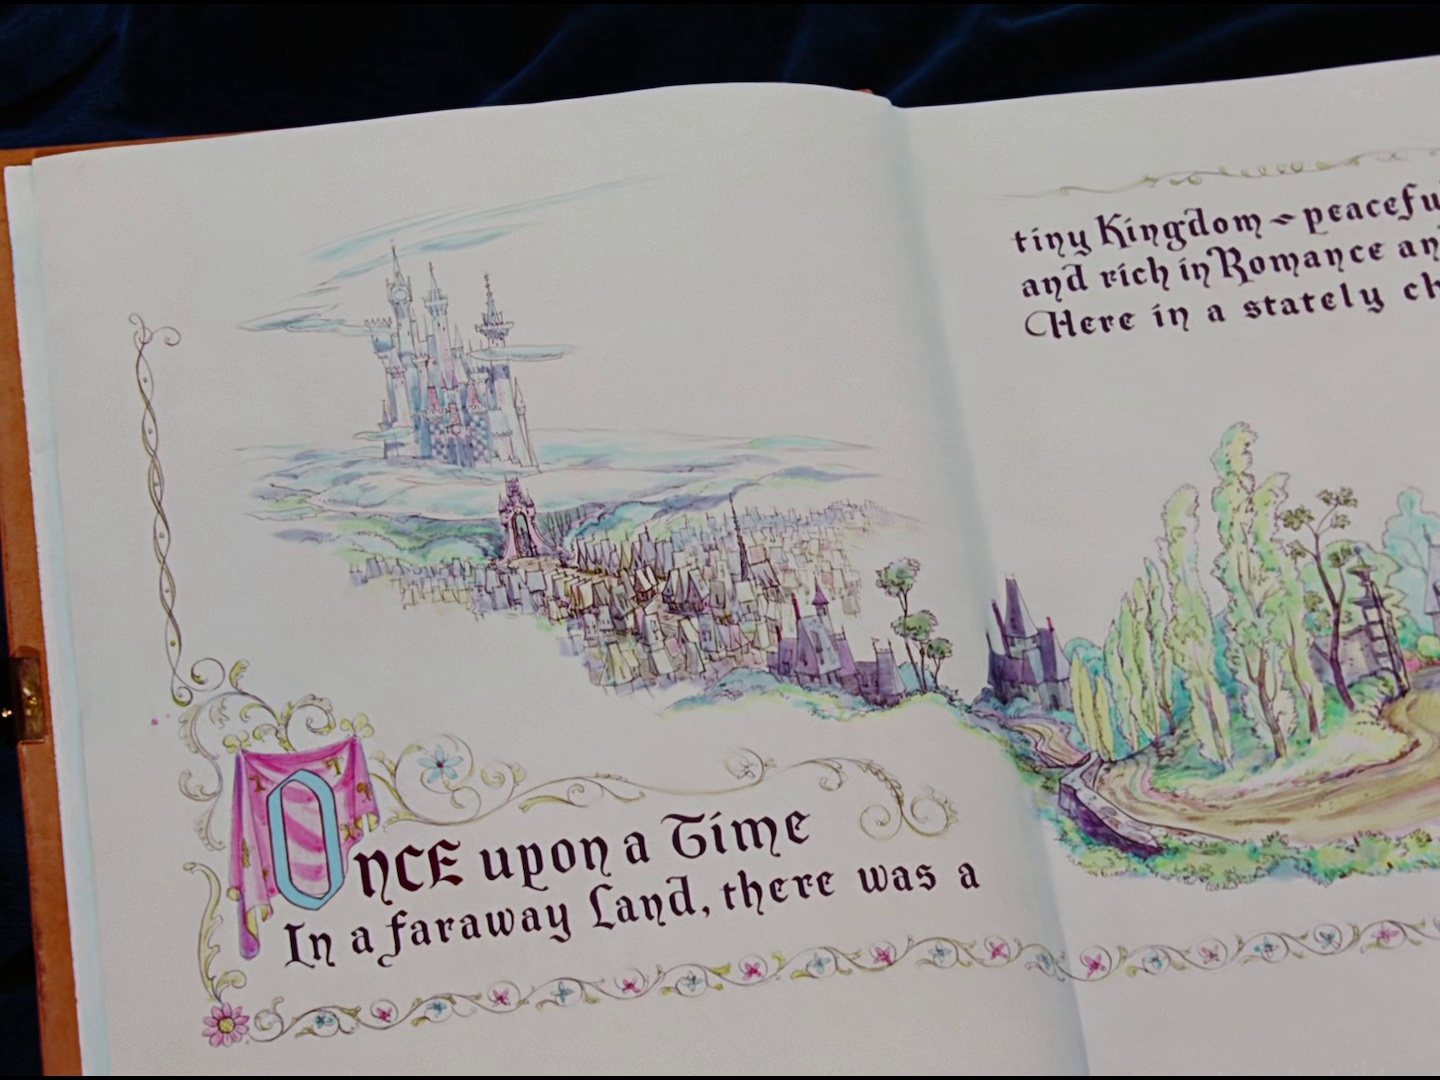 Once upon a Time
In a faraway Land, there was a
tiny Kingdom ~ peaceful
and rich in Romance an
Here in a stately ch